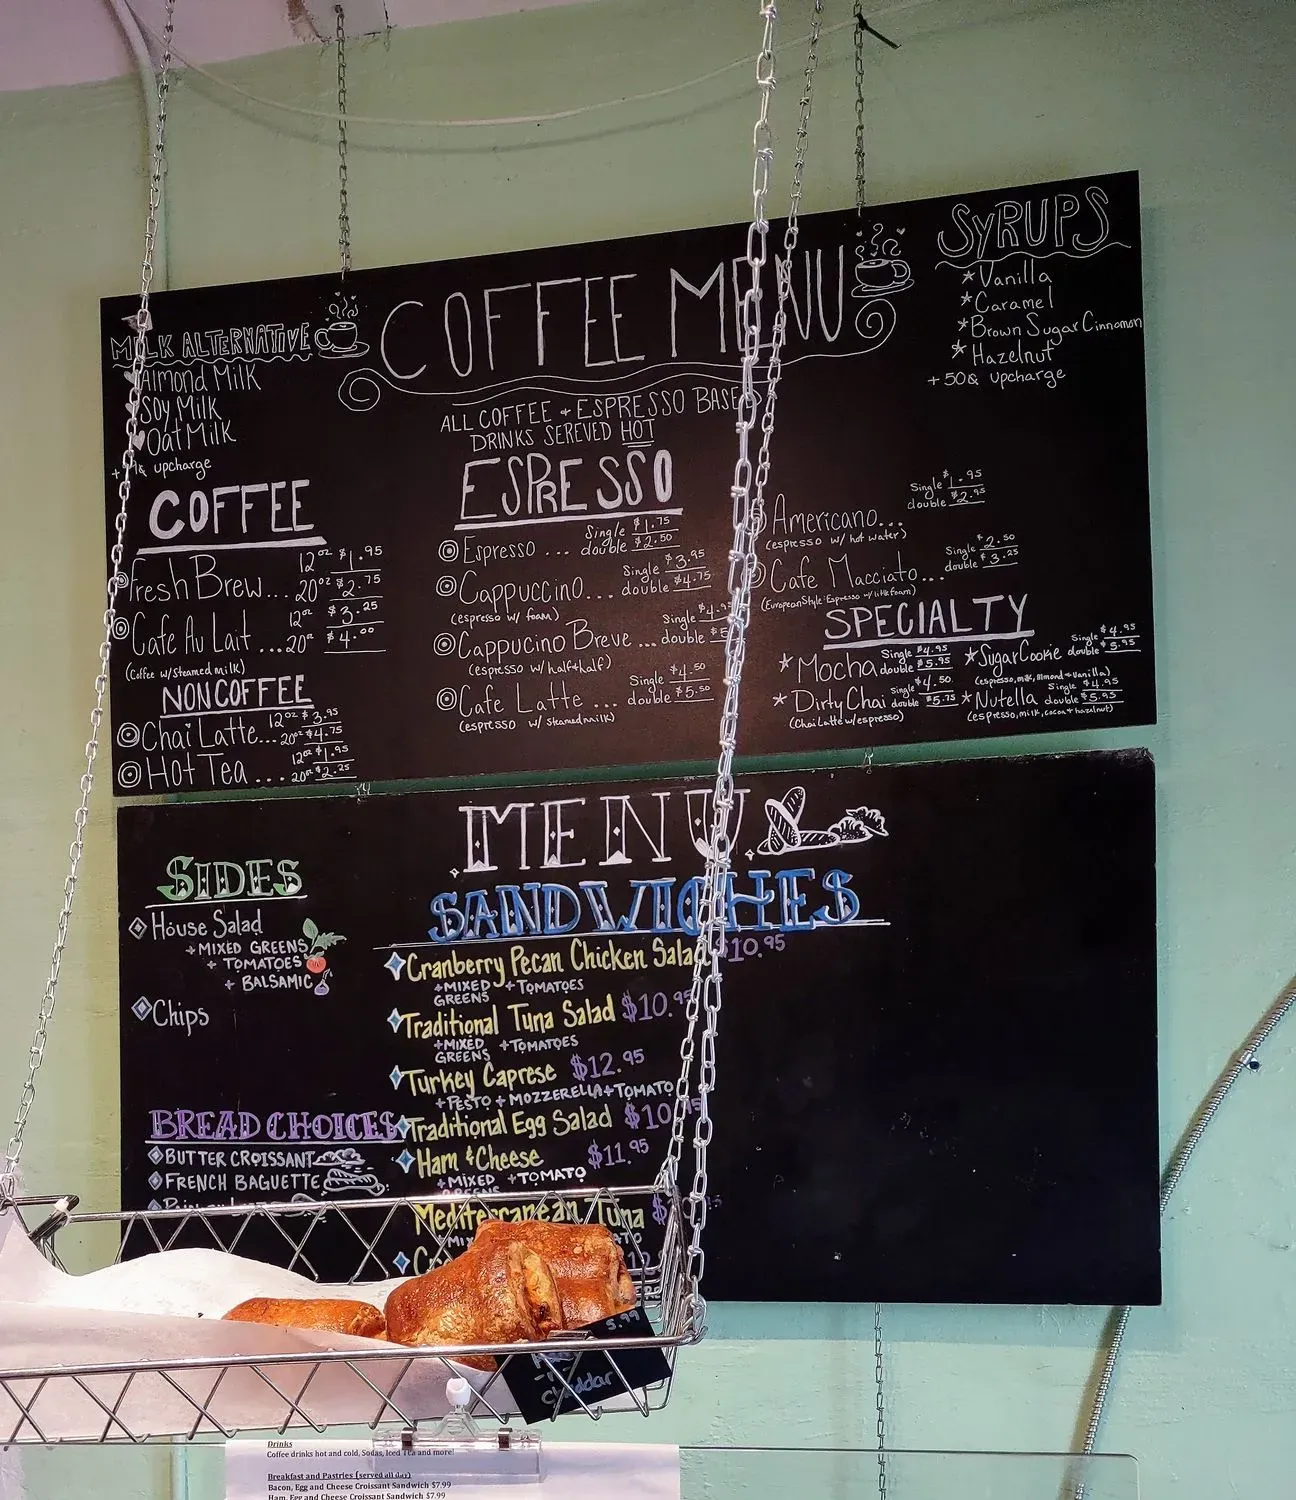 MILK ALTERNATIVE
Almond Milk
Soy Milk
Oat Milk
upcharge
COFFEE MENU
ALL COFFEE + ESPRESSO BASED
DRINKS SEREVED HOT
SYRUPS
Vanilla
Caramel
Brown Sugar Cinnamon
Hazelnut
+50¢ upcharge
COFFEE
Fresh Brew... 12oz $1.95
20oz $2.75
Cafe Au Lait ... 12oz $3.25
20oz $4.00
(Coffee w/Steamed milk)
NON COFFEE
Chai Latte... 12oz $3.95
20oz $4.75
Hot Tea ... 12oz $1.95
20oz $2.25
ESPRESSO
Espresso ... Single $1.75
double $2.50
Cappuccino... Single $3.95
double $4.75
(espresso w/ foam)
Cappucino Breve ... Single
double
(espresso w/ half+half)
Cafe Latte ... Single $4.50
double $5.50
(espresso w/ steamed milk)
Americano... Single $1.95
double $2.95
(espresso w/ hot water)
Cafe Macciato... Single $2.50
double $3.25
(European Style: Espresso w/ little foam)
SPECIALTY
Mocha Single $4.95
double $5.95
Dirty Chai Single $4.50
double $5.75
(Chai Latte w/espresso)
Sugar Cookie Single $4.95
double $5.95
(espresso, milk, almond + vanilla)
Nutella Single $4.95
double $5.95
(espresso, milk, cocoa + hazelnut)
MENU
SIDES
House Salad
+MIXED GREENS
+ TOMATOES
+ BALSAMIC
Chips
BREAD CHOICES
BUTTER CROISSANT
FRENCH BAGUETTE
SANDWICHES
Cranberry Pecan Chicken Salad $10.95
+MIXED GREENS +TOMATOES
Traditional Tuna Salad $10.95
+MIXED GREENS +TOMATOES
Turkey Caprese $12.95
+ PESTO + MOZZERELLA + TOMATO
Traditional Egg Salad $10.95
Ham & Cheese $11.95
+MIXED GREENS +TOMATO
Mediterranean Tuna
5.99
Cheddar
Drinks
Coffee drinks hot and cold, Sodas, Iced Tea and more!
Breakfast and Pastries (served all day)
Bacon, Egg and Cheese Croissant Sandwich $7.99
Ham, Egg and Cheese Croissant Sandwich $7.99